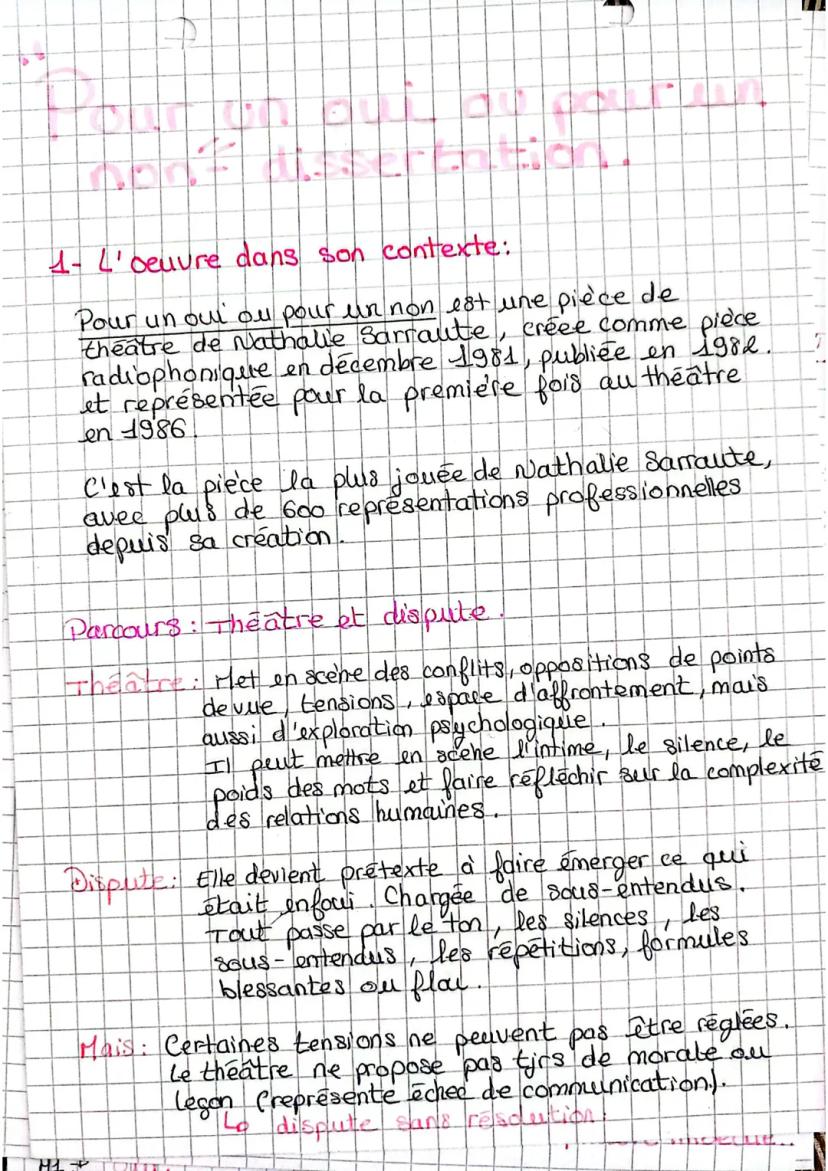 "Pour un oui ou pour un
non" - dissertation.
1- L'oeuvre dans son contexte:
Pour un oui ou pour un non est une pièce de
théâtre de Nathalie Sarraute, créee comme pièce
radiophonique en décembre 1981, publiée en 1982.
et représentée pour la première fois au théâtre
en 1986.
C'est la pièce la plus jouée de Nathalie Sarraute,
avec plus de 600 représentations professionnelles
depuis sa création.
Parcours : Théâtre et dispute.
Théâtre : Met en scène des conflits, oppositions de points
de vue, tensions, espace d'affrontement, mais
aussi d'exploration psychologique.
Il peut mettre en scène l'intime, le silence, le
poids des mots et faire réfléchir sur la complexité
des relations humaines.
Dispute : Elle devient prétexte à faire émerger ce qui
était enfoui. Chargée de sous-entendus.
Tout passe par le ton, les silences, les
sous-entendus, les répétitions, formules
blessantes ou flou.
Mais : Certaines tensions ne peuvent pas être réglées.
Le théâtre ne propose pas tjrs de morale ou
leçon (représente échec de communication).
↳ dispute sans résolution.